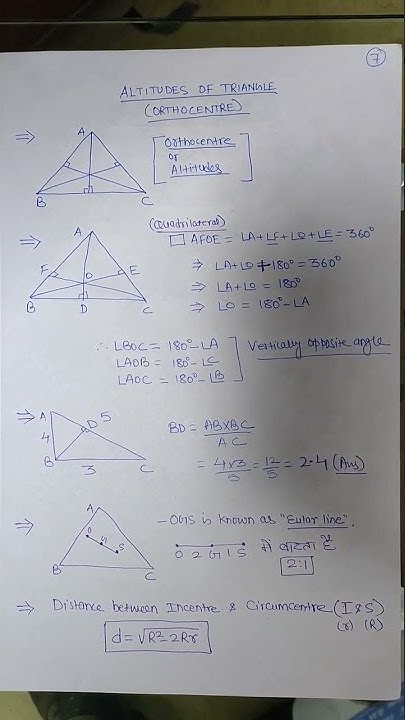 7
ALTITUDES OF TRIANGLE
(ORTHOCENTRE)
⇒ A B C
[Orthocentre
or
Altitudes]
(Quadrilateral)
⇒ A F E O B D C
□ AFOE = ∠A+∠F+∠O+∠E = 360°
⇒ ∠A+∠O+180° = 360°
⇒ ∠A+∠O = 180°
⇒ ∠O = 180°-∠A
∴ ∠BOC = 180°-∠A
∠AOB = 180°-∠C
∠AOC = 180°-∠B
] Vertically opposite angle
⇒ A D 5 4 B 3 C
BD = AB×BC/AC
= 4×3/5 = 12/5 = 2.4 (Ans)
⇒ A O G S B C
- OGS is known as "Eular line".
O 2 G 1 S में बाटता है
2:1
⇒ Distance between Incentre & Circumcentre (I & S)
(r) (R)
d = √R²-2Rr